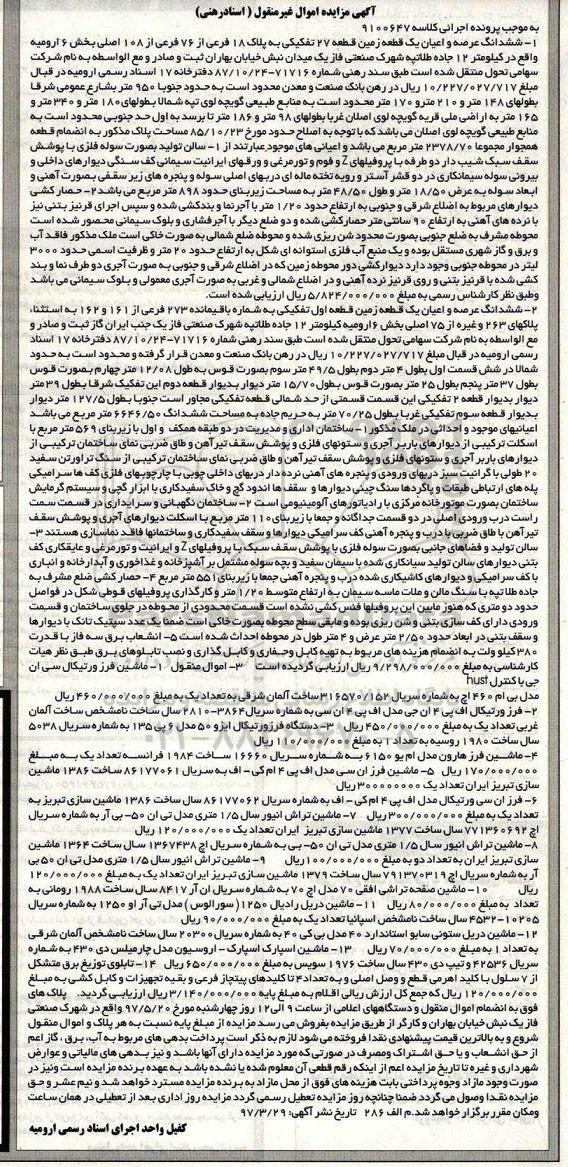 آگهی مزایده اموال غیرمنقول ( اسنادرهنی)
به موجب پرونده اجرائی کلاسه ۹۱۰۰۶۴۷
۱- ششدانگ عرصه و اعیان یک قطعه زمین قطعه ۲۷ تفکیکی به پلاک ۱۸ فرعی از ۷۶ فرعی از ۱۰۸ اصلی بخش ۶ ارومیه
واقع در کیلومتر ۱۲ جاده طلاتپه شهرک صنعتی فاز یک میدان نبش خیابان بهاران ثبت و صادر و مع الواسطه به نام شرکت
سهامی تحول منتقل شده است طبق سند رهنی شماره ۷۱۷۱۶-۸۷/۱۰/۲۴ دفترخانه ۱۷ اسناد رسمی ارومیه در قبال
مبلغ ۱۰/۲۲۷/۰۲۷/۷۱۷ ریال در رهن بانک صنعت و معدن محدود است به حدود جنوبا ۹۵۰ متر بشارع عمومی شرقا
بطولهای ۱۴۸ متر و ۲۱۰ مترو ۱۷۰ متر محدود است به منابع طبیعی گویچه لوی تپه شمالا بطولهای ۱۸۰ متر و ۳۴۰ متر و
۱۶۵ متر به اراضی ملی قریه گویچه لوی اصلان غربا بطولهای ۹۸ متر و ۱۸۶ متر تا برسد به اول حد جنوبی محدود است به
منابع طبیعی گویچه لوی اصلان می باشد که با توجه به اصلاح حدود مورخ ۸۵/۱۰/۲۳ مساحت پلاک مذکور به انضمام قطعه
همجوار مجموعا ۲۳۷۸/۷۰ متر مربع می باشد و اعیانی های موجود عبارتند از ۱- سالن تولید بصورت سوله فلزی با پوشش
سقف سبک شیب دار دو طرفه با پروفیلهای Z و فوم و تورمرغی و ورقهای ایرانیت سیمانی کف سنگی دیوارهای داخلی و
بیرونی سوله سیمانکاری در دو قشر آستر و رویه تخته ماله ای دربهای اصلی سوله و پنجره های زیر سقفی بصورت آهنی و
ابعاد سوله به عرض ۱۸/۵۰ متر و طول ۴۸/۵۰ متر به مساحت زیربنای حدود ۸۹۸ متر مربع می باشد۲- حصار کشی
دیوارهای مربوط به اضلاع شرقی و جنوبی به ارتفاع حدود ۱/۲۰ متر با آجرنما و بندکشی شده و سپس اجرای قرنیز بتنی نیز
با نرده های آهنی به ارتفاع ۹۰ سانتی متر حصارکشی شده و دو ضلع دیگر با آجرفشاری و بلوک سیمانی محصور شده است
محوطه مشرف به ضلع جنوبی بصورت محدود شن ریزی شده و محوطه ضلع شمالی به صورت خاکی است ملک مذکور فاقد آب
و برق و گاز شهری مستقل بوده و یک منبع آب فلزی استوانه ای شکل به ارتفاع حدود ۲۰ متر و ظرفیت اسمی حدود ۳۰۰۰
لیتر در محوطه جنوبی وجود دارد دیوارکشی دور محوطه زمین که در اضلاع شرقی و جنوبی به صورت آجری دو طرف نما و بند
کشی شده با قرنیز بتنی و روی قرنیز نرده آهنی و در اضلاع شمالی و غربی به صورت آجری معمولی و بلوک سیمانی می باشد
وطبق نظر کارشناس رسمی به مبلغ ۵/۸۲۴/۰۰۰/۰۰۰ ریال ارزیابی شده است.
۲- ششدانگ عرصه و اعیان یک قطعه زمین قطعه اول تفکیکی به شماره باقیمانده ۲۷۳ فرعی از ۱۶۱ و ۱۶۲ به استثناء
پلاکهای ۲۶۳ وغیره از ۷۵ اصلی بخش ۶ارومیه کیلومتر ۱۲ جاده طلاتپه شهرک صنعتی فاز یک جنب ایران گاز ثبت و صادر و
مع الواسطه به نام شرکت سهامی تحول منتقل شده است طبق سند رهنی شماره ۷۱۷۱۶-۸۷/۱۰/۲۴ دفترخانه ۱۷ اسناد
رسمی ارومیه در قبال مبلغ ۱۰/۲۲۷/۰۲۷/۷۱۷ ریال در رهن بانک صنعت و معدن قرار گرفته و محدود است به حدود
شمالا در شش قسمت اول بطول ۴ متر دوم بطول ۴۹/۵ متر سوم بصورت قوس به طول ۱۲/۰۸ متر چهارم بصورت قوس
بطول ۳۷ متر پنجم بطول ۲۵ متر بصورت قوس بطول ۱۵/۷۰ متر دیوار بدیوار قطعه دوم این تفکیک شرقا بطول ۳۹ متر
دیوار بدیوار قطعه ۲ تفکیکی این قسمت قسمتی از حد شمالی قطعه تفکیکی مجاور است جنوبا بطول ۱۲۷/۵ متر دیوار
بدیوار قطعه سوم تفکیکی غربا بطول ۷۰/۲۵ متر به حریم جاده به مساحت ششدانگ ۶۶۴۶/۵۰ متر مربع می باشد
اعیانیهای موجود و احداثی در ملک مذکور ۱- ساختمان اداری و مدیریت در دو طبقه همکف و اول با زیربنای ۵۶۹ متر مربع با
اسکلت ترکیبی از دیوارهای باربر آجری و ستونهای فلزی و پوشش سقف تیرآهن و طاق ضربی نمای ساختمان ترکیبی از
دیوارهای باربر آجری و ستونهای فلزی و پوشش سقف تیرآهن و طاق ضربی نمای ساختمان ترکیبی از سنگ تراورتن سفید
۲۰ طولی با گرانیت سبز دربهای ورودی و پنجره های آهنی نرده دار دربهای داخلی چوبی با چارچوبهای فلزی کف ها سرامیکی
پله های ارتباطی طبقات و پاگردها سنگ چینی دیوارها و سقف ها اندود گچ و خاک سفیدکاری با ابزار گچی و سیستم گرمایش
ساختمان بصورت موتورخانه مرکزی با رادیاتورهای آلومینیومی است ۲- ساختمان نگهبانی و سرایداری در قسمت سمت
راست درب ورودی اصلی در دو قسمت جداگانه و جمعا با زیربنای ۱۱۰ متر مربع با اسکلت دیوارهای آجری و پوشش سقف
تیرآهن با طاق ضربی با درب و پنجره آهنی کف سرامیکی دیوارها و سقف سفیدکاری و ساختمانها فاقد نماسازی هستند ۳-
سالن تولید و فضاهای جانبی بصورت سوله فلزی با پوشش سقف سبک با پروفیلهای Z و ایرانیت و تورمرغی و عایقکاری کف
بتنی دیوارهای سالن تولید سیمانکاری شده با سیمان سفید و بچه سوله مشتمل بر آشپزخانه و غذاخوری و آبدارخانه و انباری
با کف سرامیکی و دیوارهای کاشیکاری شده درب و پنجره آهنی جمعا با زیربنای ۵۵۱ متر مربع ۴- حصار کشی ضلع مشرف به
جاده طلاتپه با سنگ مالن و ملات ماسه سیمان به ارتفاع متوسط ۱/۲۰ متر و کارگذاری پروفیلهای قوطی شکل در فواصل
حدود دو متری که هنوز مابین این پروفیلها فنس کشی نشده است قسمت محدودی از محوطه در جلوی ساختمان و قسمت
ورودی دارای کف سازی بتنی و شن ریزی بوده و مابقی سطح محوطه بصورت خاکی است ضمنا یک عدد سپتیک تانک با دیوارها
و سقف بتنی در ابعاد حدود ۲/۵۰ متر عرض و ۴ متر طول در محوطه احداث شده است ۵- انشعاب برق سه فاز با قدرت
۳۸۰ کیلو ولت به انضمام هزینه های مربوط به تهیه کابل وحفاری و کابل گذاری و نصب تابلوهای برق طبق نظر هیات
کارشناسی به مبلغ ۹/۲۹۸/۰۰۰/۰۰۰ ریال ارزیابی گردیده است ۳- اموال منقول ۱- ماشین فرز ورتیکال سی ان
جی با کنترل hust
مدل بی ام ۴۶۰ اچ به شماره سریال ۳۱۶۵۷۰/۱۵۲ ساخت آلمان شرقی به تعداد یک به مبلغ ۴۶۰/۰۰۰/۰۰۰ ریال
۲- فرز ورتیکال اف پی ۴ ان جی مدل اف پی ۴ ان سی به شماره سریال ۳۸۶۴-۲۸۱۰ سال ساخت نامشخص ساخت آلمان
غربی تعداد یک به مبلغ ۴۵۰/۰۰۰/۰۰۰ ریال ۳- دستگاه فرزورتیکال ایزو ۵۰ مدل ۶ پی ۱۳۵ به شماره سریال ۵۰۳۸
سال ساخت ۱۹۸۰ روسیه به تعداد ۱ به مبلغ ۱۱۰/۰۰۰/۰۰۰ ریال
۴- ماشین فرز هارون مدل ام یو ۶۱۵۰ به شماره سریال ۱۶۶۶۰ ساخت ۱۹۸۴ فرانسه تعداد یک به مبلغ
۱۷۰/۰۰۰/۰۰۰ ریال ۵- ماشین فرز ان سی مدل اف پی ۴ ام کی - اف به سریال ۸۶۱۷۷۰۶۱ ساخت ۱۳۸۶ ماشین
سازی تبریز ایران تعداد یک ۳۰۰۰۰۰۰۰۰ریال
۶- فرز ان سی ورتیکال مدل اف پی ۴ ام کی - اف به شماره سریال ۸۶۱۷۷۰۶۲ سال ساخت ۱۳۸۶ ماشین سازی تبریز به
تعداد یک به مبلغ ۳۰۰/۰۰۰/۰۰۰ ریال ۷- ماشین تراش انیور سال ۱/۵ متری مدل تی ان ۵۰- بی آر به شماره سریال
اچ ۷۷۱۳۶۰۶۹۲ سال ساخت ۱۳۷۷ ماشین سازی تبریز ایران تعداد یک ۱۲۰/۰۰۰/۰۰۰ ریال
۸- ماشین تراش انیور سال ۱/۵ متری مدل تی ان ۵۰- بی به شماره سریال اچ ۱۳۶۷۴۳۸ سال ساخت ۱۳۶۴ ماشین
سازی تبریز ایران به تعداد دو به مبلغ ۱۰۰/۰۰۰/۰۰۰ریال ۹- ماشین تراش انیور سال ۱/۵ متری مدل تی ان ۵۰ بی
آر به شماره سریال اچ ۷۹۱۳۷۰۳۱۹ سال ساخت ۱۳۷۹ ماشین سازی تبریز ایران تعداد یک به مبلغ ۱۲۰/۰۰۰/۰۰۰
ریال ۱۰- ماشین صفحه تراشی افقی ۷۰ مدل اچ ۷۰ به شماره سریال ان آر ۸۴۱۷ سال ساخت ۱۹۸۸ رومانی به
تعداد به مبلغ ۸۰/۰۰۰/۰۰۰ ریال ۱۱- ماشین دریل رادیال ۱۲۵۰ ( سورالوس ) مدل تی آر او ۱۲۵۰ به شماره سریال
۱۰۲۰۵-۴۵۳۲ سال ساخت نامشخص اسپانیا تعداد یک به مبلغ ۹۰/۰۰۰/۰۰۰ ریال
۱۲- ماشین دریل ستونی سابو استاندارد ۴۰ مدل بی کی ۴۰ به شماره سریال ۲۰۳۰۰ سال ساخت نامشخص آلمان شرقی
به تعداد ۱ به مبلغ ۷۰/۰۰۰/۰۰۰ ریال ۱۳- ماشین اسپارک اسپارک - اروسیون مدل چارمیلس دی ۴۳۰ به شماره
سریال ۴۲۵۳۶ و تیپ دی ۴۳۰ سال ساخت ۱۹۷۶ سویس به مبلغ ۶۵۰/۰۰۰/۰۰۰ ریال ۱۴- تابلوی توزیع برق متشکل
از ۷ سلول با کلید اهرمی قطع و وصل اصلی و به تعداد ۴ تا کلیدهای پیتچاز فرعی و بقیه تجهیزات و کابل کشی به مبلغ
۱۲۰/۰۰۰/۰۰۰ ریال که جمع کل ارزش ریالی اقلام به مبلغ پایه ۳/۱۴۰/۰۰۰/۰۰۰ریال ارزیابی گردید. پلاک های
فوق به انضمام اموال منقول و دستگاههای اعلامی از ساعت ۹ الی۱۲ روز چهارشنبه مورخ ۹۷/۵/۲۰ واقع در شهرک صنعتی
فاز یک نبش خیابان بهاران و کارگر از طریق مزایده بفروش می رسد مزایده از مبلغ پایه نسبت به هر پلاک و اموال منقول
شروع و به بالاترین قیمت پیشنهادی نقدا فروخته می شود لازم به ذکر است پرداخت بدهی های مربوط به آب، برق ، گاز اعم
از حق انشعاب و یا حق اشتراک ومصرف در صورتی که مورد مزایده دارای آنها باشد و نیز بدهی های مالیاتی و عوارض
شهرداری و غیره تا تاریخ مزایده اعم از اینکه رقم قطعی آن معلوم شده یا نشده باشد به عهده برنده مزایده است ونیز در
صورت وجود مازاد وجوه پرداختی بابت هزینه های فوق از محل مازاد به برنده مزایده مسترد خواهد شد و نیم عشر و حق
مزایده نقدا وصول می گردد ضمنا چنانچه روز مزایده تعطیل رسمی گردد مزایده روز اداری بعد از تعطیلی در همان ساعت
ومکان مقرر برگزار خواهد شد.م الف ۲۸۶ تاریخ نشر آگهی: ۹۷/۳/۲۹
کفیل واحد اجرای اسناد رسمی ارومیه